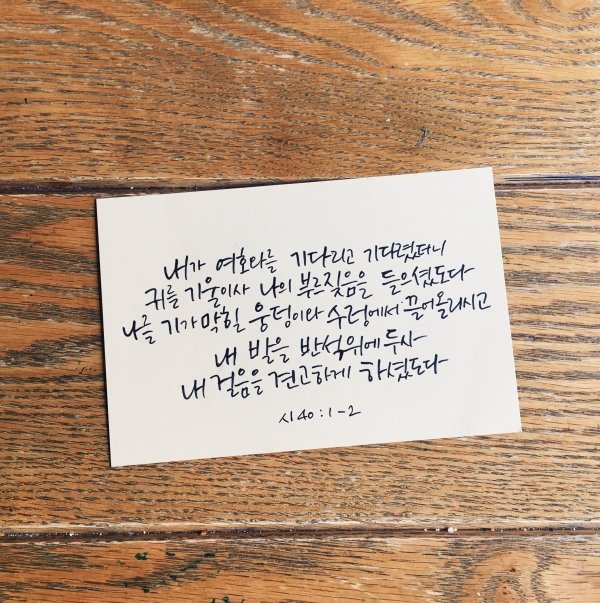 내가 여호와를 기다리고 기다렸더니
귀를 기울이사 나의 부르짖음을 들으셨도다
나를 기가 막힐 웅덩이와 수렁에서 끌어올리시고
내 발을 반석위에 두사
내 걸음을 견고하게 하셨도다
시 40 : 1 - 2